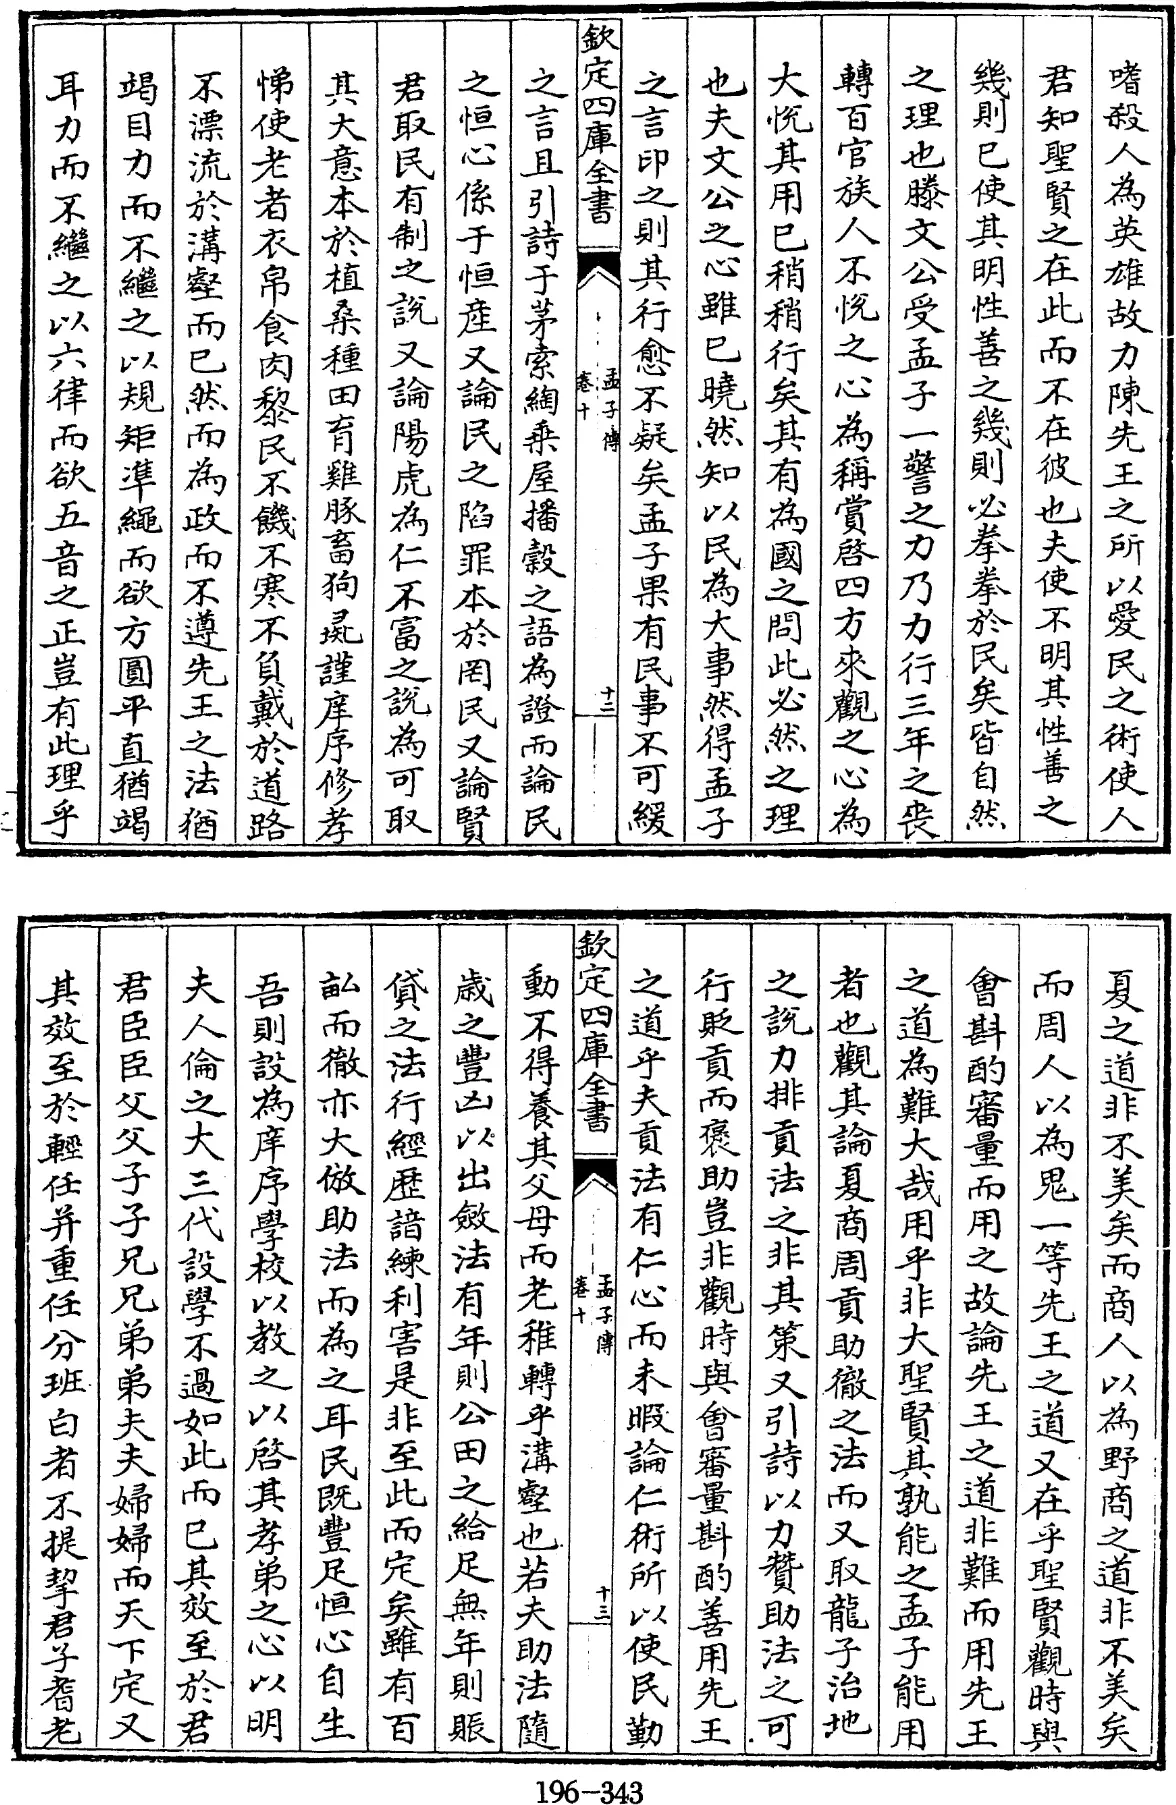 嗜殺人為英雄故力陳先王之所以愛民之術使人
君知聖賢之在此而不在彼也夫使不明其性善之
幾則已使其明性善之幾則必拳拳於民矣皆自然
之理也滕文公受孟子一警之力乃力行三年之喪
轉百官族人不悅之心為稱賞啓四方來觀之心為
大悅其用已稍稍行矣其有為國之問此必然之理
也夫文公之心雖已曉然知以民為大事然得孟子
之言印之則其行愈不疑矣孟子果有民事不可緩
欽定四庫全書
孟子傳
卷十
十二
之言且引詩于茅索綯乘屋播穀之語為證而論民
之恒心係于恒産又論民之陷罪本於罔民又論賢
君取民有制之說又論陽虎為仁不富之說為可取
其大意本於植桑種田育雞豚畜狗彘謹庠序修孝
悌使老者衣帛食肉黎民不饑不寒不負戴於道路
不漂流於溝壑而已然而為政而不遵先王之法猶
竭目力而不繼之以規矩凖繩而欲方圓平直猶竭
耳力而不繼之以六律而欲五音之正豈有此理乎
夏之道非不美矣而商人以為野商之道非不美矣
而周人以為鬼一等先王之道又在乎聖賢觀時與
㑹斟酌審量而用之故論先王之道非難而用先王
之道為難大哉用乎非大聖賢其孰能之孟子能用
者也觀其論夏商周貢助徹之法而又取龍子治地
之說力排貢法之非其策又引詩以力贊助法之可
行貶貢而褒助豈非觀時與㑹審量斟酌善用先王
之道乎夫貢法有仁心而未暇論仁術所以使民勤
欽定四庫全書
孟子傳
卷十
十三
動不得養其父母而老稚轉乎溝壑也若夫助法隨
歳之豐凶以出斂法有年則公田之給足無年則賑
貸之法行經歴諳練利害是非至此而定矣雖有百
畝而徹亦大倣助法而為之耳民既豐足恒心自生
吾則設為庠序學校以教之以啓其孝弟之心以明
夫人倫之大三代設學不過如此而已其效至於君
君臣臣父父子子兄兄弟弟夫夫婦婦而天下定又
其效至於輕任并重任分班白者不提挈君子耆老
196-343